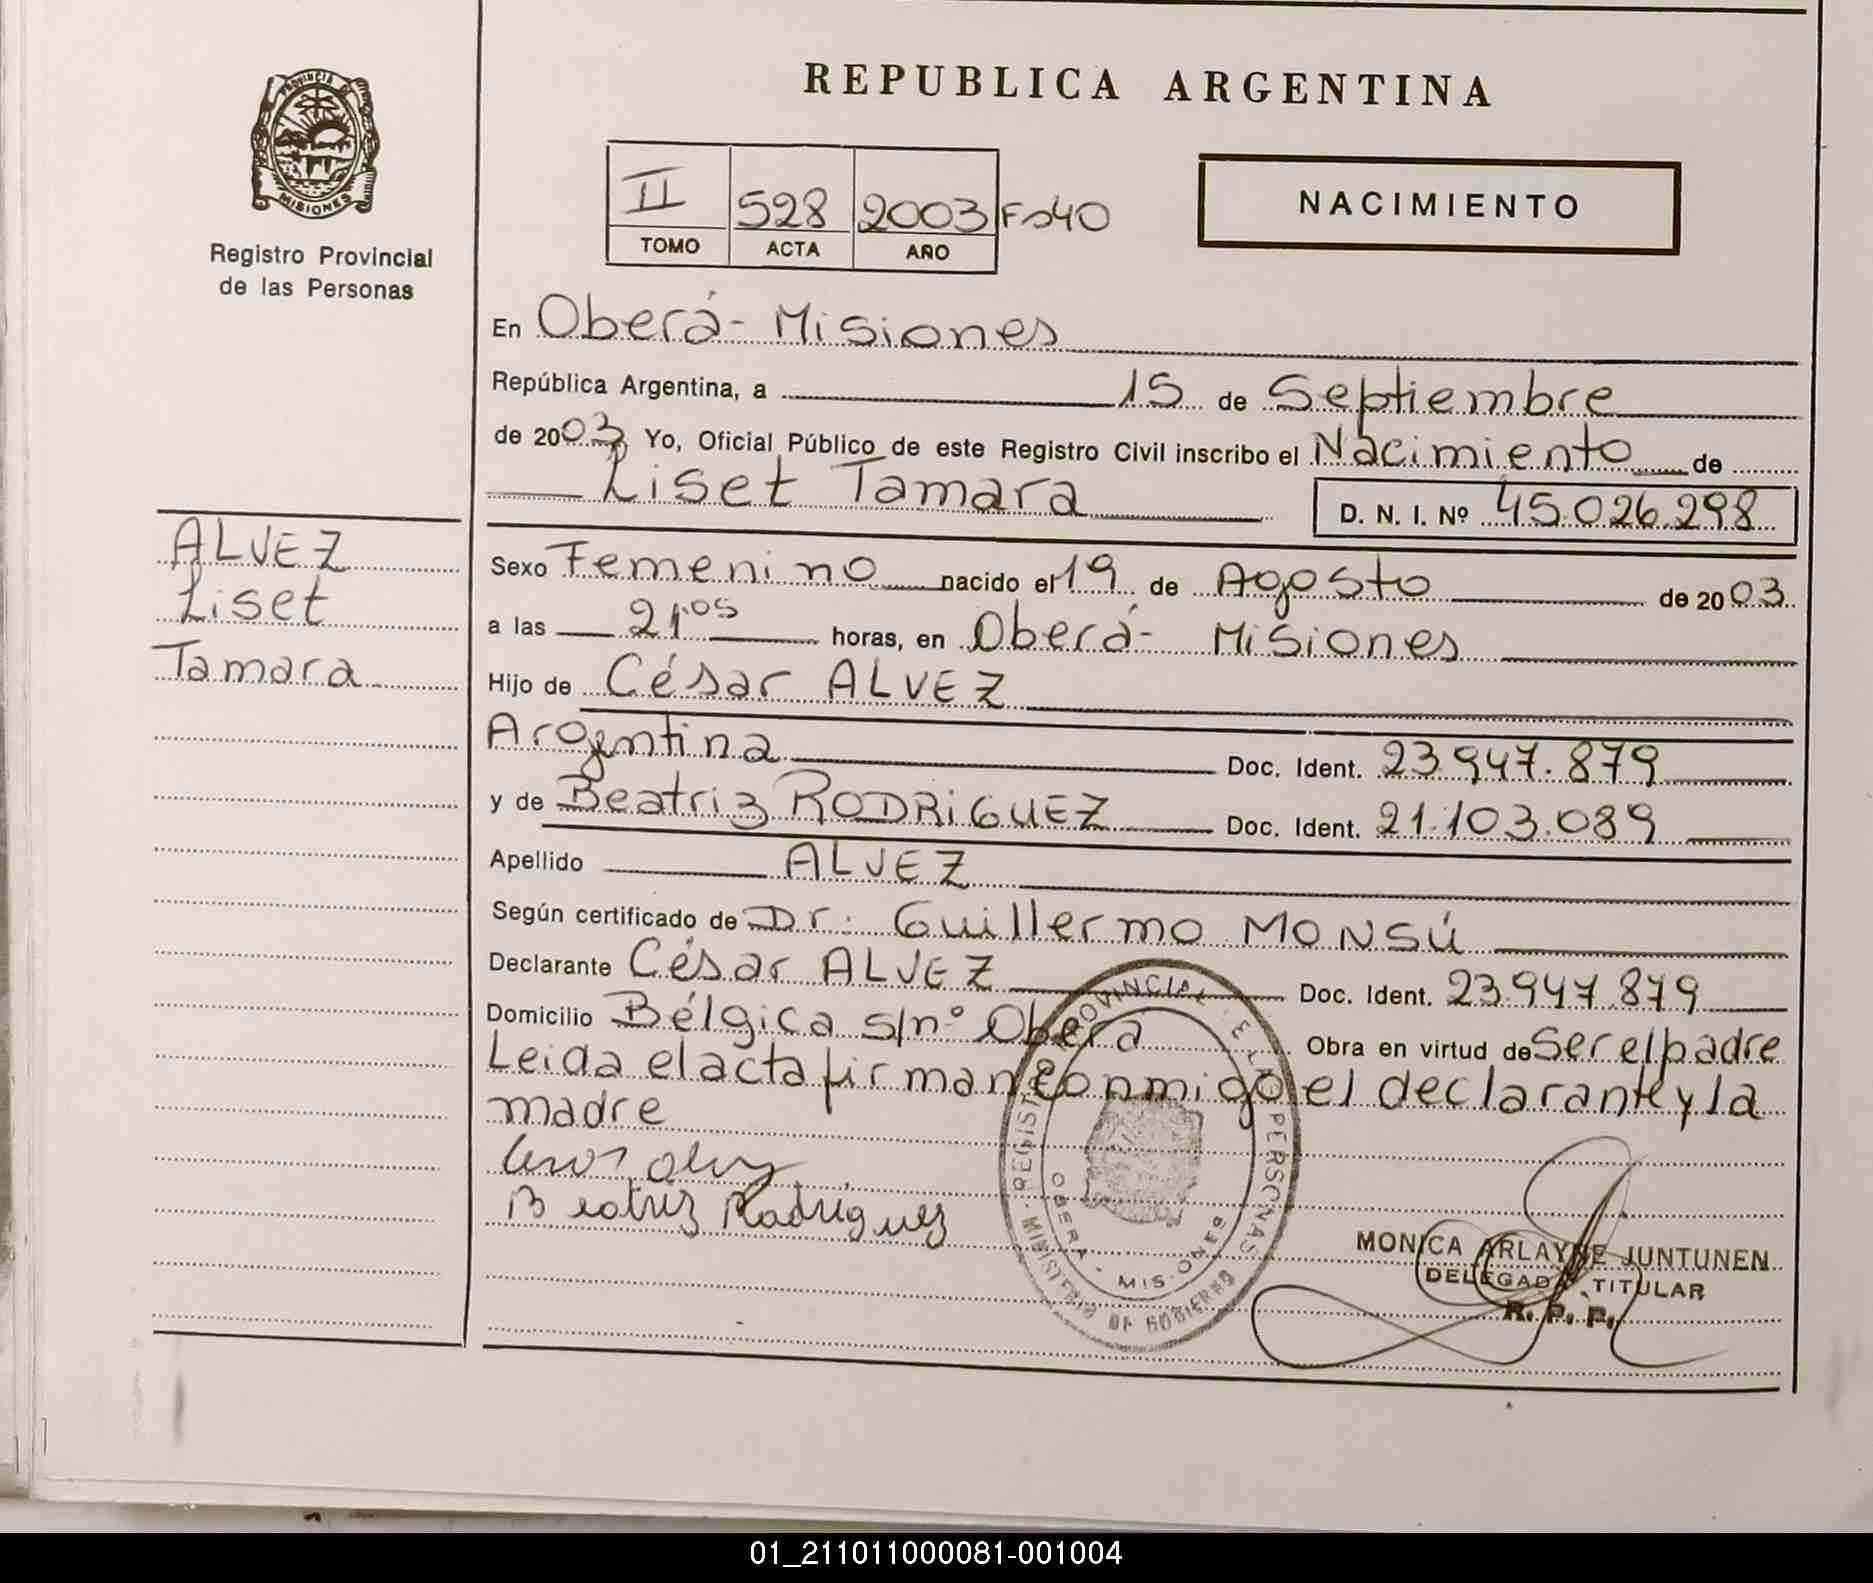 REPUBLICA ARGENTINA
PROVINCIA DE MISIONES
Registro Provincial
de las Personas
II 528 2003 Fo 40
TOMO ACTA AÑO
NACIMIENTO
En Oberá - Misiones
República Argentina, a 15 de Septiembre
de 2003 Yo, Oficial Público de este Registro Civil inscribo el Nacimiento de
Liset Tamara D. N. I. Nº 45.026.298
ALVEZ
Liset
Tamara
Sexo Femenino nacido el 19 de Agosto de 2003
a las 21:05 horas, en Oberá - Misiones
Hijo de César ALVEZ
Argentina Doc. Ident. 23.947.879
y de Beatriz RODRIGUEZ Doc. Ident. 21.103.089
Apellido ALVEZ
Según certificado de Dr: Guillermo MONSÚ
Declarante César ALVEZ Doc. Ident. 23.947.879
Domicilio Bélgica s/nº Oberá Obra en virtud de Ser el padre
Leida el acta firman conmigo el declarante y la
madre
Beatriz Rodriguez
REGISTRO PROVINCIAL DE LAS PERSONAS
OBERA - MISIONES
MINISTERIO DE GOBIERNO
MONICA ARLAYNE JUNTUNEN
DELEGADA TITULAR
R. P. P.
01_211011000081-001004